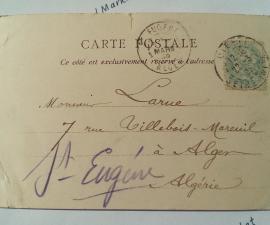 CARTE POSTALE
Ce côté est exclusivement réservé à l'adresse
Monsieur Larue
7 rue Villebois-Mareuil
à Alger
St Eugène
Algérie
MARS